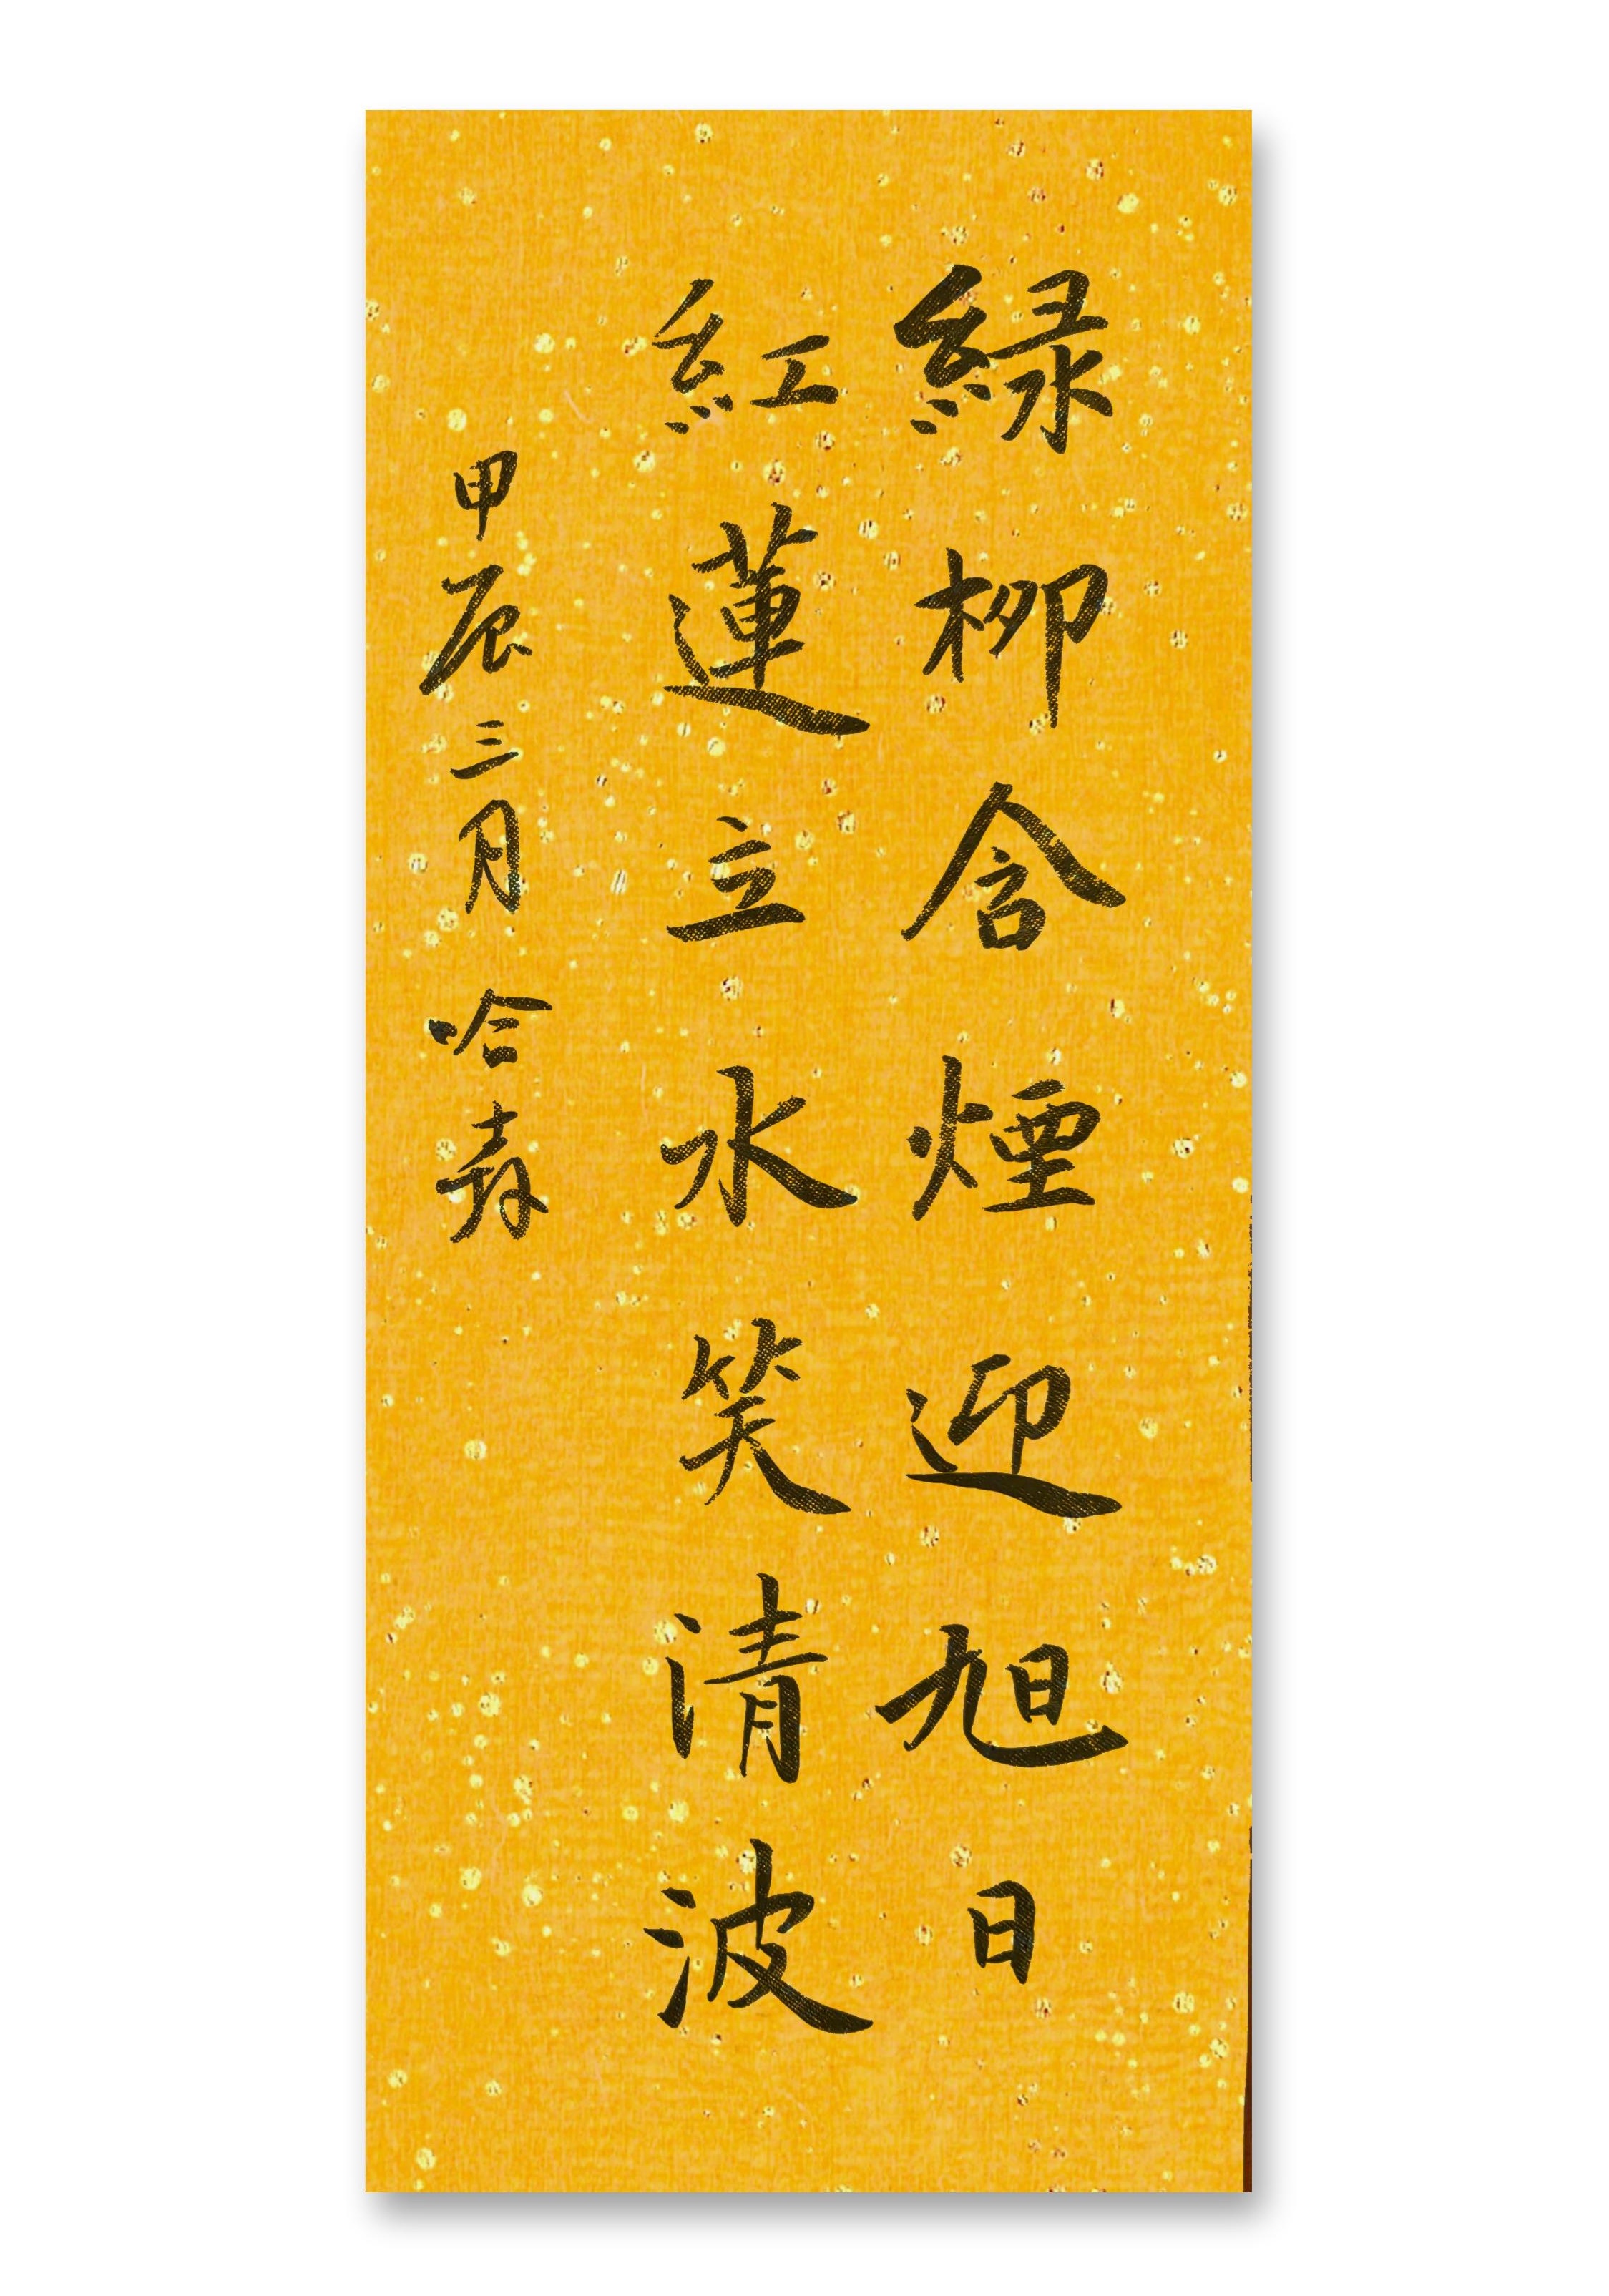 緑柳含煙迎旭日
紅蓮立水笑清波
甲辰三月 哈森